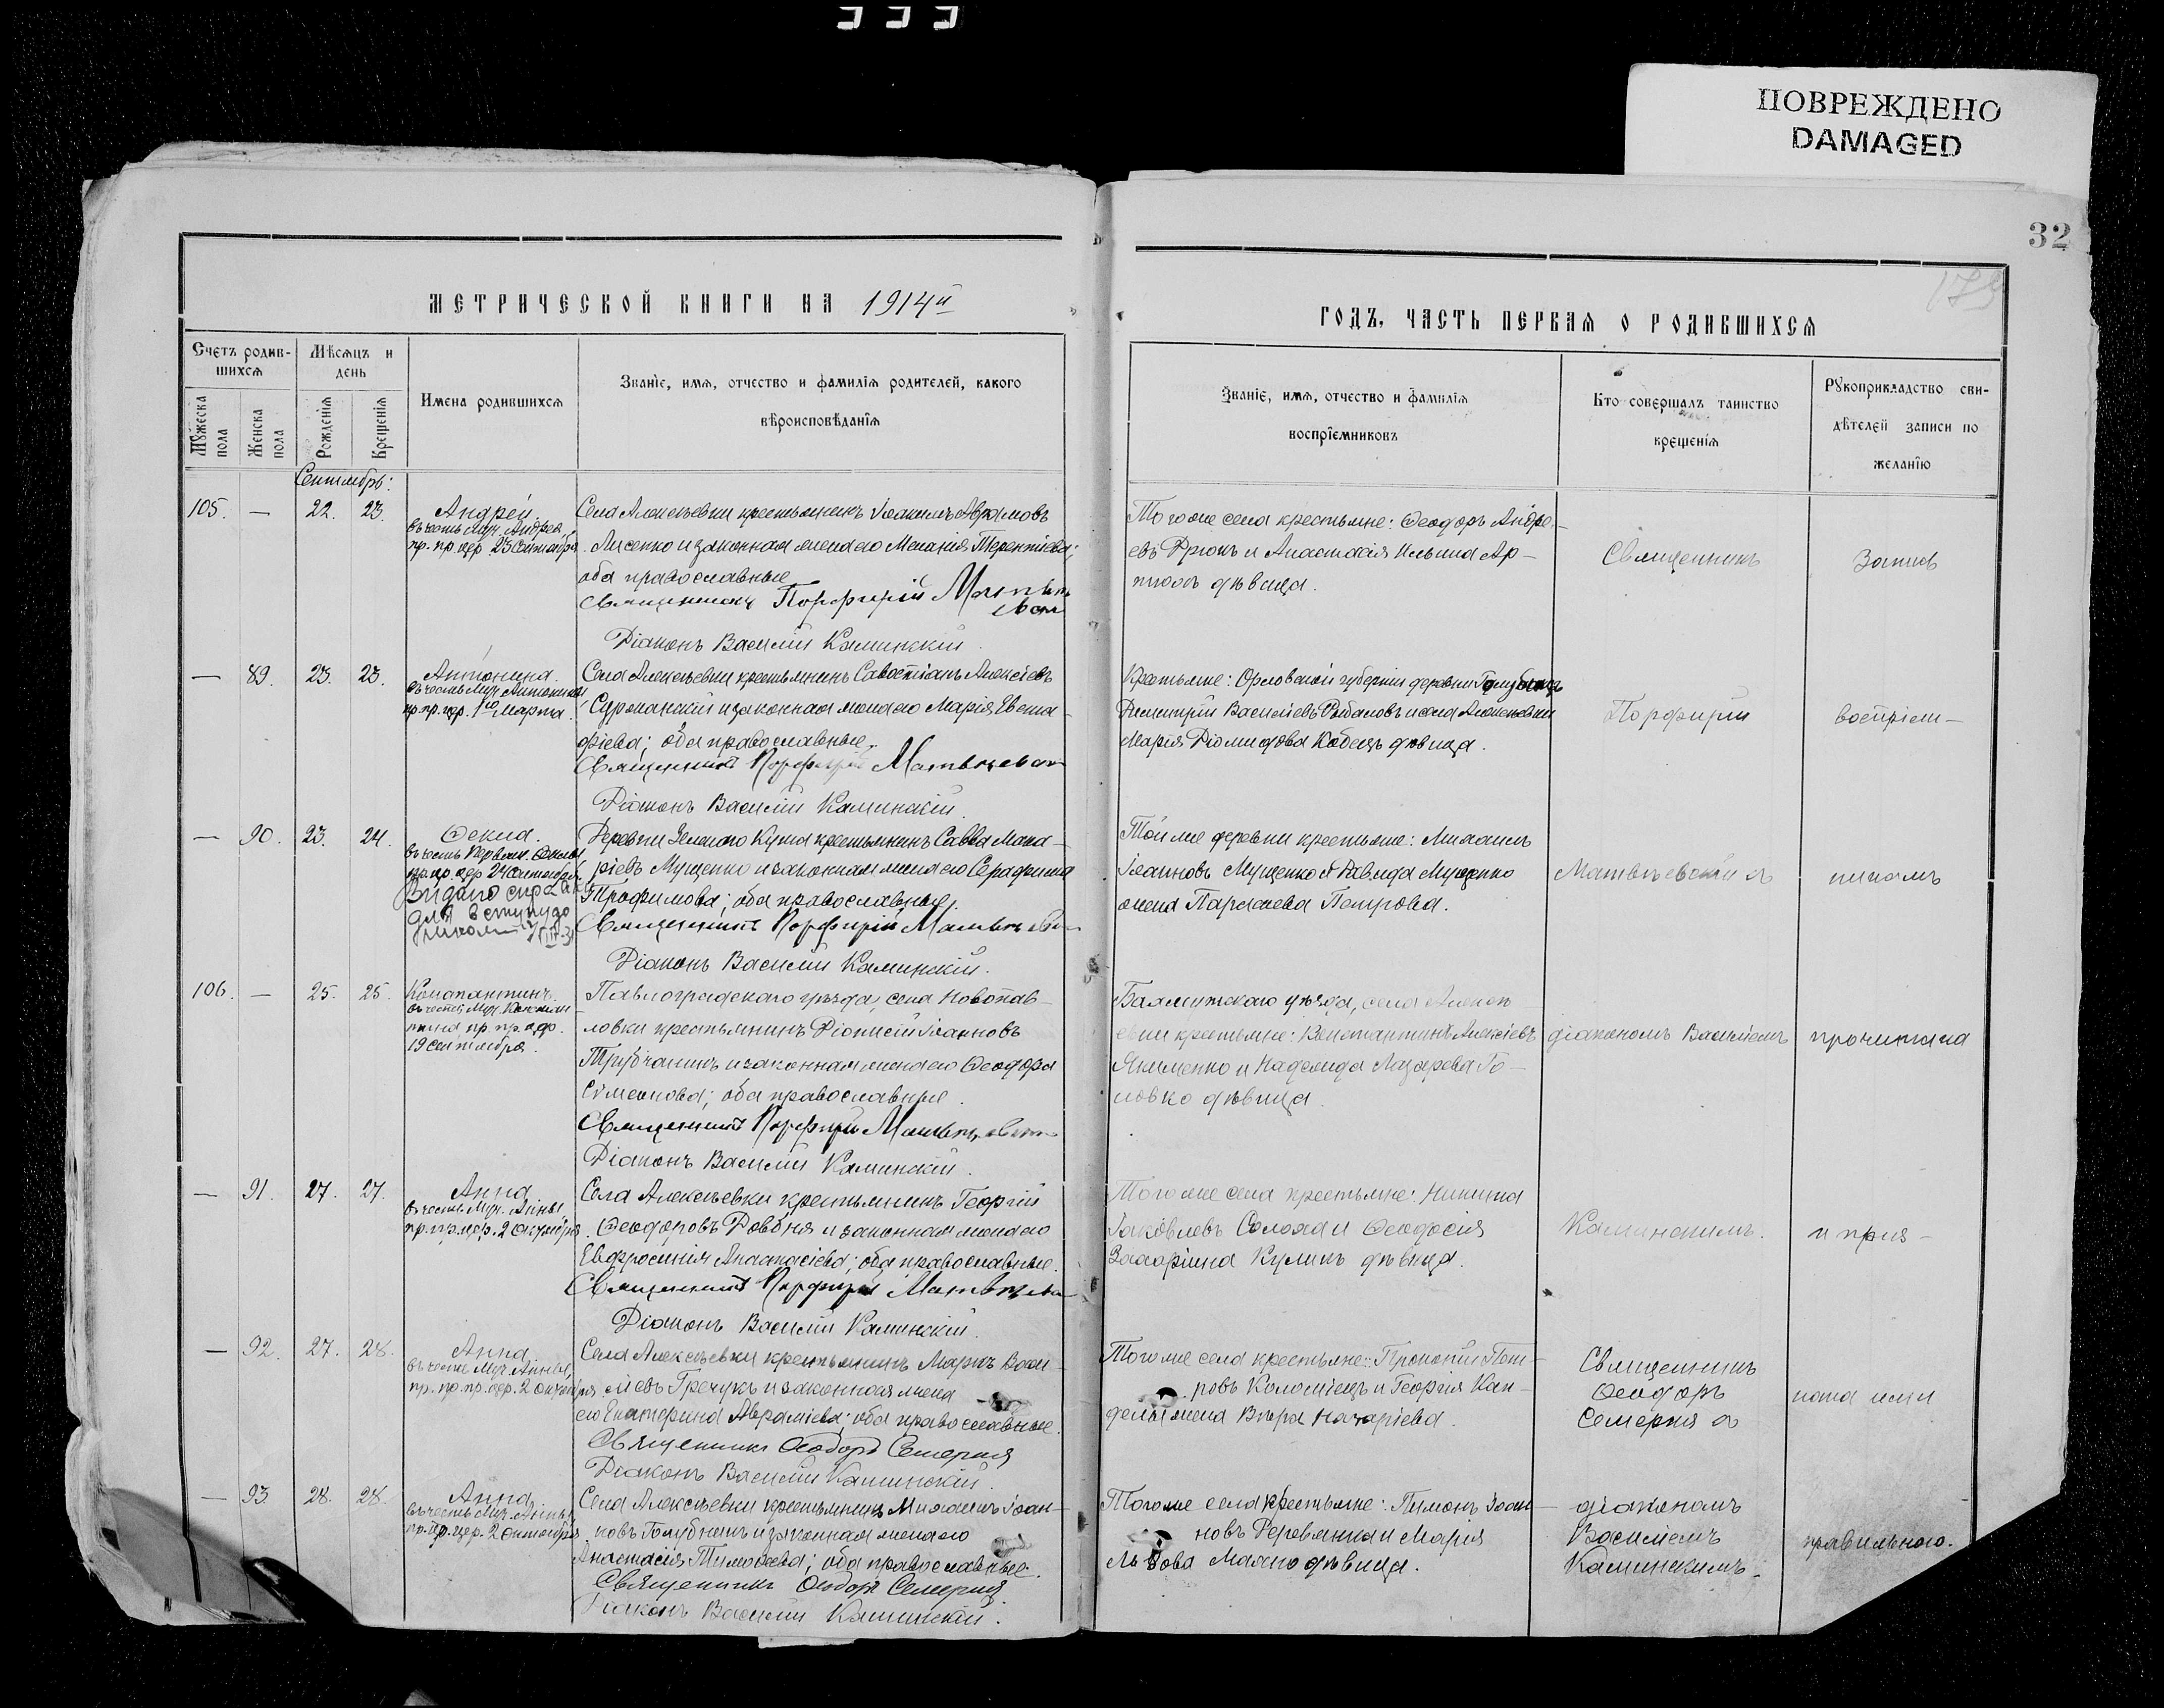 ПОВРЕЖДЕНО
DAMAGED
32
МЕТРИЧЕСКОЙ КНИГИ НА 1914й
ГОДЪ, ЧАСТЬ ПЕРВАЯ О РОДИВШИХСЯ
Счетъ родив-
шихся
Мѣсяцъ и
день
Мужеска
пола
Женска
пола
Рожденія
Крещенія
Имена родившихся
Званіе, имя, отчество и фамилія родителей, какого
вѣроисповѣданія
Званіе, имя, отчество и фамилія
воспріемниковъ
Кто совершалъ таинство
крещенія
Рукоприкладство сви-
дѣтелей записи по
желанію
Сентябрь:
105. — 22. 23.
Андрей.
въ честь Муч. Андрея,
пр. пр. цер. 23 Сентября
Села Алексѣевки крестьянинъ Іоакимъ Аврамовъ
Лисенко и законная жена его Меланія Терентіева;
оба православные
Священникъ Порфирій
Діаконъ Василій Каминскій.
Того же села крестьяне: Феодоръ Андре-
евъ Дрюкъ и Анастасія Ильина Ар-
тюхъ дѣвица.
Священникъ
Запись
— 89. 23. 23.
Антонина.
въ честь Муч. Антонины
пр. пр. цер. 1го Марта.
Села Алексѣевки крестьянинъ Савостіанъ Алексѣевъ
и законная жена его Марія Евста-
фіева; оба православные.
Священникъ Порфирій Матвѣевскій
Діаконъ Василій Каминскій.
Крестьяне: Орловской губерніи деревни
Димитрій Васильевъ Рыбаловъ и села Алексѣевки
Марія Діомидова Кобецъ дѣвица.
Порфирій
воспріем-
— 90. 23. 24.
Фекла.
въ честь Первом. Феклы
пр. пр. цер. 24 Сентября
для вступу до
школи
Деревни Зеленого Кута крестьянинъ Савва Мака-
ріевъ Мущенко и законная жена его Серафима
Трофимова; оба православные.
Священникъ Порфирій Матвѣевскій
Діаконъ Василій Каминскій.
Той же деревни крестьяне: Михаилъ
Іоанновъ Мущенко и Давида Мущенко
жена Параскева Петрова.
Матвѣевскій съ
никомъ
106. — 25. 25.
Константинъ.
въ честь Муч. Констан-
тина пр. пр. цер.
19 сентября.
Павлоградскаго уѣзда, села Новопав-
ловки крестьянинъ Діонисій Іоанновъ
Трубчанинъ и законная жена его Феодора
Симеонова; оба православные.
Священникъ Порфирій Матвѣевскій
Діаконъ Василій Каминскій.
Бахмутскаго уѣзда, села Алексѣ-
евки крестьяне: Константинъ Алексѣевъ
Якименко и Надежда Лазарева Го-
ловко дѣвица.
діакономъ Василіемъ
прочитана
— 91. 27. 27.
Анна
въ честь Муч. Анны
пр. пр. цер. 2 октября
Села Алексѣевки крестьянинъ Георгій
Феодоровъ Ровбня и законная жена его
Евфросинія Анастасіева; оба православные.
Священникъ Порфирій
Діаконъ Василій Каминскій.
Того же села крестьяне: Никита
Іаковлевъ Солоха и Феодосія
Захаріина Куликъ дѣвица.
Каминскимъ.
и приз-
— 92. 27. 28.
Анна.
въ честь Муч. Анны,
пр. пр. пр. цер. 2 октября
Села Алексѣевки крестьянинъ Маркъ Васи-
ліевъ Гречукъ и законная жена
его Екатерина Авраміева; оба православные.
Священникъ Феодоръ Семерня
Діаконъ Василій Каминскій.
Того же села крестьяне: Прокопій Пет-
ровъ Коломіецъ и Георгія
жена Вѣра Назаріева.
Священникъ
Феодоръ
Семерня съ
нана ими
— 93 28. 28.
Анна
въ честь Муч. Анны
пр. пр. цер. 2 октября
Села Алексѣевки крестьянинъ Михаилъ Іоан-
новъ Голубникъ и законная жена его
Анастасія Тимофеева; оба православные.
Священникъ Феодоръ Семерня
Діаконъ Василій Каминскій.
Того же села крестьяне: Пименъ Іоан-
новъ Деревянка и Марія
Львова Махно дѣвица.
діакономъ
Василіемъ
Каминскимъ.
правильною.